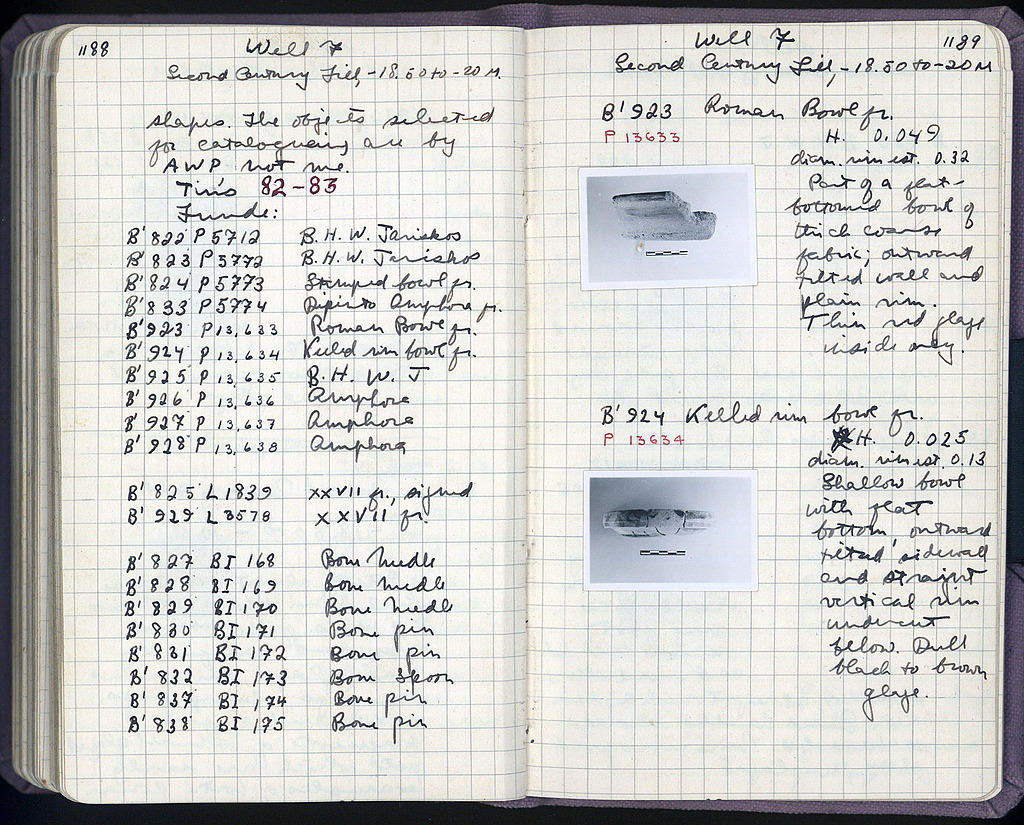 1188
Well 7
Second Century Fill, -18.50 to -20 M.
shapes. The objects selected
for cataloguing are by
AWP not me.
Tins 82-83
Funde:
B' 822 P 5712 B.H.W. Jariskos
B' 823 P 5772 B.H.W. Jariskos
B' 824 P 5773 Stamped bowl fr.
B' 833 P 5774 Dipinto Amphora fr.
B' 923 P 13,633 Roman Bowl fr.
B' 924 P 13,634 Keeled rim bowl fr.
B' 925 P 13,635 B.H.W. J
B' 926 P 13,636 Amphora
B' 927 P 13,637 Amphora
B' 928 P 13,638 Amphora
B' 825 L 1839 XXVII fr., signed
B' 929 L 3578 XXVII fr.
B' 827 BI 168 Bone needle
B' 828 BI 169 Bone needle
B' 829 BI 170 Bone needle
B' 830 BI 171 Bone pin
B' 831 BI 172 Bone pin
B' 832 BI 173 Bone Spoon
B' 837 BI 174 Bone pin
B' 838 BI 175 Bone pin
Well 7
1189
Second Century Fill, -18.50 to -20 M
B' 923 Roman Bowl fr.
P 13633 H. 0.049
diam. rim est. 0.32
Part of a flat-
bottomed bowl of
thick coarse
fabric; outward
tilted wall and
plain rim.
Thin red glaze
inside only.
B' 924 Keeled rim bowl fr.
P 13634 H. 0.025
diam. rim est. 0.13
Shallow bowl
with flat
bottom, outward
tilted sidewall
and straight
vertical rim
undercut
below. Dull
black to brown
glaze.